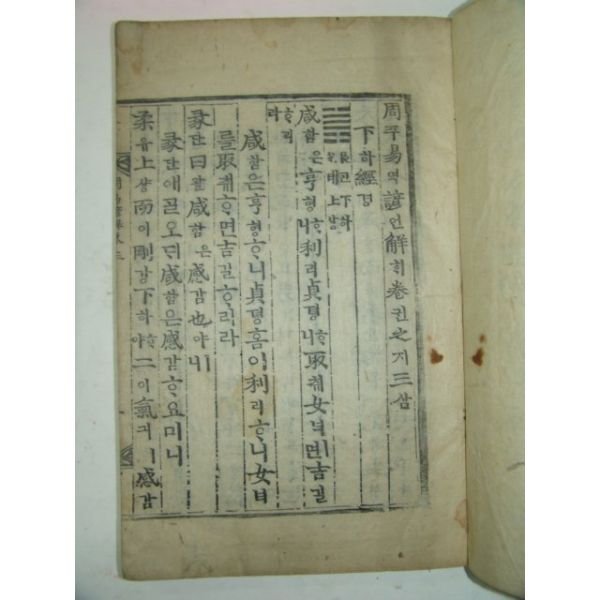 周쥬易역諺언解ᄒᆡ卷권之지三삼
下하經경
艮간下하
兌태上샹
咸함은亨형ᄒᆞ니利리貞뎡ᄒᆞ니取ᄎᆔ女녀면吉길
ᄒᆞ리라
咸함은亨형ᄒᆞ니貞뎡홈이利리ᄒᆞ니女녀
를取ᄎᆔᄒᆞ면吉길ᄒᆞ리라
彖단曰왈咸함은感감也야ㅣ니
彖단애ᄀᆞᆯ오ᄃᆡ咸함은感감홈이니
柔유上샹而이剛강下하야二이氣긔ㅣ感감